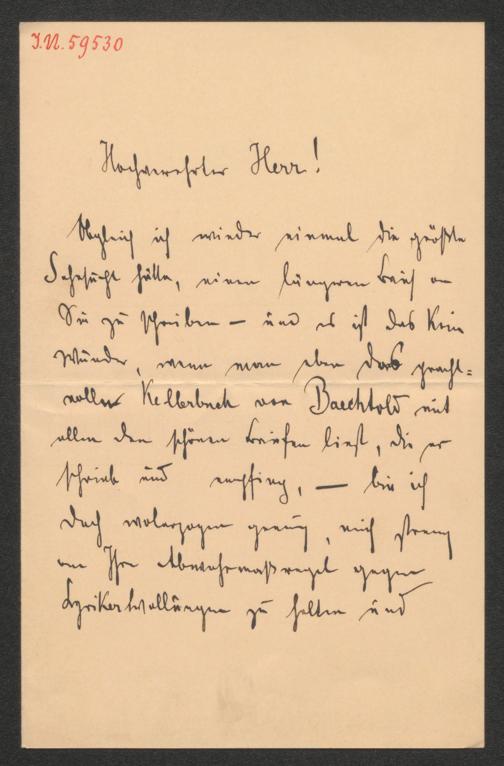 I.N. 59530
Hochverehrter Herr!
Obgleich ich wieder einmal die größte
Sehnsucht hätte, einen längeren Brief an
Sie zu schreiben – und es ist das kein
Wunder, wenn man eben das pracht-
volle Kellerbuch von Baechtold mit
allen den schönen Briefen liest, die er
schrieb und empfing, – bin ich
doch wolerzogen genug, mich streng
an Ihre Abwehrmaßregel gegen
Lyrikerwallungen zu halten und